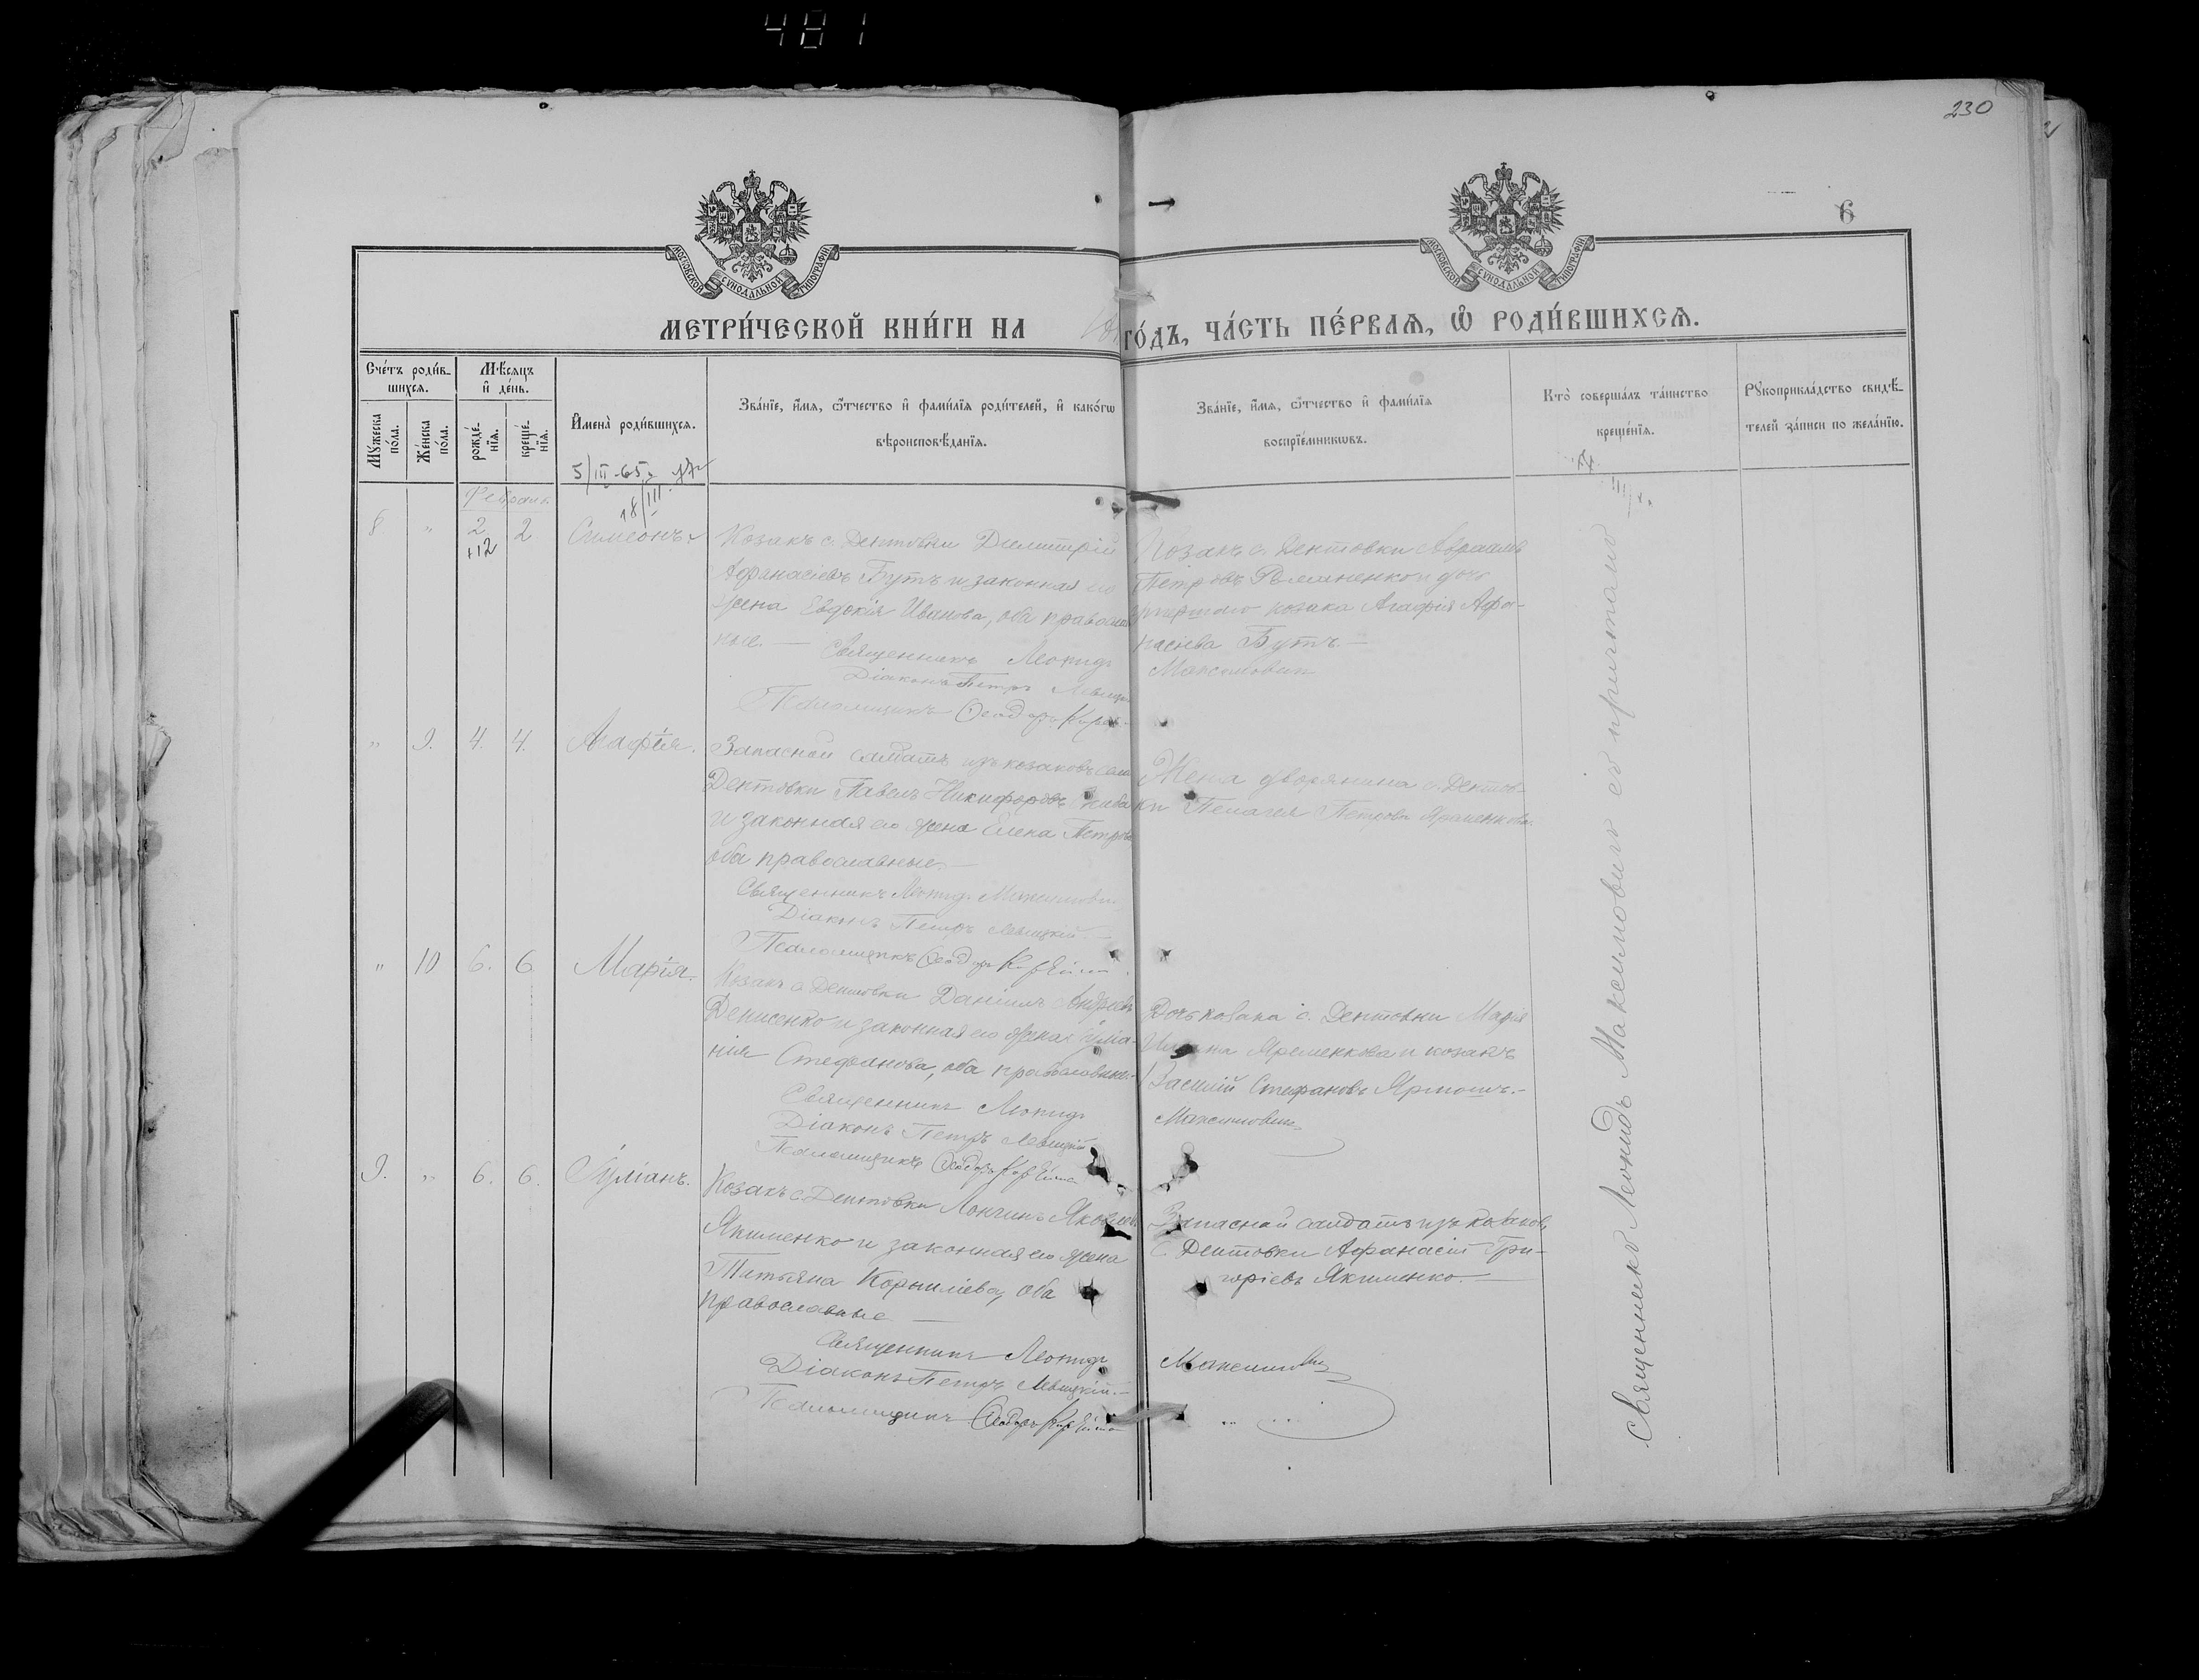 481
230
6
МОСКОВСКОЙ СѴНОДАЛЬНОЙ ТИПОГРАФІИ
МОСКОВСКОЙ СѴНОДАЛЬНОЙ ТИПОГРАФІИ
МЕТРИ́ЧЕСКОЙ КНИ́ГИ НА
ГО́ДЪ, ЧА́СТЬ ПЕ́РВАѦ, Ѡ҆ РОДИ́ВШИХСѦ.
Сче́тъ роди́в-
шихсѧ.
Мѣ́сѧцъ
и҆ де́нь.
Мꙋ́жеска
по́ла.
Же́нска
по́ла.
рожде́-
нїѧ.
креще́-
нїѧ.
И҆мена̀ роди́вшихсѧ.
Зва́нїе, и҆́мѧ, ѻ҆́тчество и҆ фами́лїѧ роди́телей, и҆ како́гѡ
вѣроисповѣ́данїѧ.
Зва́нїе, и҆́мѧ, ѻ҆́тчество и҆ фами́лїѧ
воспрїе́мникѡвъ.
Кто̀ соверша́лъ та́инство
креще́нїѧ.
Рꙋкоприкла́дство свидѣ́-
телей за́писи по жела́нїю.
5/III-65
18/III
Февраль
8 " 2 2 Симеонъ
+12
Козакъ с. Дептовки Димитрій
Афанасіевъ Бутъ и законная его
жена Евдокія Иванова, оба православ
ные. —
Священникъ Леонидъ
Діаконъ Петръ Левицкій
Псаломщикъ Ѳеодоръ
Козакъ с. Дептовки Авраамъ
Петровъ и дочь
умершаго козака Агафія Афа-
насіева Бутъ. —
Максимович
" 9. 4. 4. Агафія.
Запасной солдатъ изъ козаковъ села
Дептовки Павелъ Никифоровъ
и законная его жена Елена Петрова
оба православные. —
Священникъ Леонидъ Максимович
Діаконъ Петръ Левицкій. —
Псаломщикъ Ѳеодоръ
Жена дворянина с. Дептов-
ки Пелагея Петрова
" 10 6. 6 Марія.
Козакъ с. Дептовки Даніилъ Андреевъ
Денисенко и законная его жена Іуліа-
нія Стефанова, оба православные.
Священникъ Леонидъ
Діаконъ Петръ Левицкій
Псаломщикъ Ѳеодоръ
Дочь козака с. Дептовки Марія
Яременкова и козакъ
Василій Стефановъ Ярмошъ. —
Максимович
9. " 6. 6. Іуліанъ.
Козакъ с. Дептовки Лонгинъ Яковлевъ
Якименко и законная его жена
Татьяна Корнилiева, оба
православные —
Священникъ Леонидъ
Діаконъ Петръ Левицкій. —
Псаломщикъ Ѳеодоръ
Запасной солдатъ изъ козаковъ
с. Дептовки Афанасій Гри-
горіевъ Якименко. —
Максимович
Священникъ Леонидъ Максимовичъ съ причтомъ